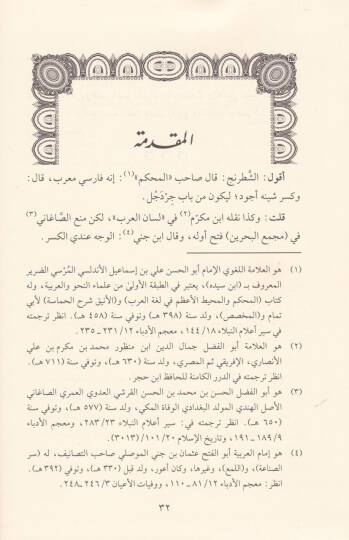 المقدمة
أقول: الشَّطرنج: قال صاحب «المحكم»(١): إنه فارسي معرب، قال:
وكسر شينه أجود؛ ليكون من باب جِرْدَحْل.
قلت: وكذا نقله ابن مكرّم(٢) في «لسان العرب»، لكن منع الصَّاغاني(٣)
في (مجمع البحرين) فتح أوله، وقال ابن جني(٤): الوجه عندي الكسر.
(١) هو العلامة اللغوي الإمام أبو الحسن علي بن إسماعيل الأندلسي المُرْسي الضرير
المعروف بـ (ابن سيده)، يعتبر في الطبقة الأولى من علماء النحو والعربية، وله
كتاب (المحكم والمحيط الأعظم في لغة العرب) و(الأنيق شرح الحماسة) لأبي
تمام و(المخصص)، ولد سنة (٣٩٨ هـ) وتوفي سنة (٤٥٨ هـ). انظر ترجمته
في سير أعلام النبلاء ١٤٤/١٨، معجم الأدباء ٢٣١/١٢ ـ ٢٣٥.
(٢) هو العلامة أبو الفضل جمال الدين ابن منظور محمد بن مكرم بن علي
الأنصاري، الإفريقي ثم المصري، ولد سنة (٦٣٠ هـ)، وتوفي سنة (٧١١ هـ).
انظر ترجمته في الدرر الكامنة للحافظ ابن حجر.
(٣) هو أبو الفضل الحسن بن محمد بن الحسن القرشي العدوي العمري الصاغاني
الأصل الهندي المولد البغدادي الوفاة المكي، ولد سنة (٥٧٧ هـ)، وتوفي سنة
(٦٥٠ هـ). انظر ترجمته في: سير أعلام النبلاء ٢٨٣/٢٣، ومعجم الأدباء
١٨٩/٩ ـ ١٩١، وتاريخ الإسلام ١٠١/٢٠ (٣٠١٣).
(٤) هو إمام العربية أبو الفتح عثمان بن جني الموصلي صاحب التصانيف، له (سر
الصناعة)، و(اللمع)، وغيرها، وكان أعور، ولد قبل (٣٣٠ هـ)، وتوفي (٣٩٢ هـ).
انظر: معجم الأدباء ٨١/١٢ ـ ١١٠، ووفيات الأعيان ٢٤٦/٣ ـ ٢٤٨.
٣٢